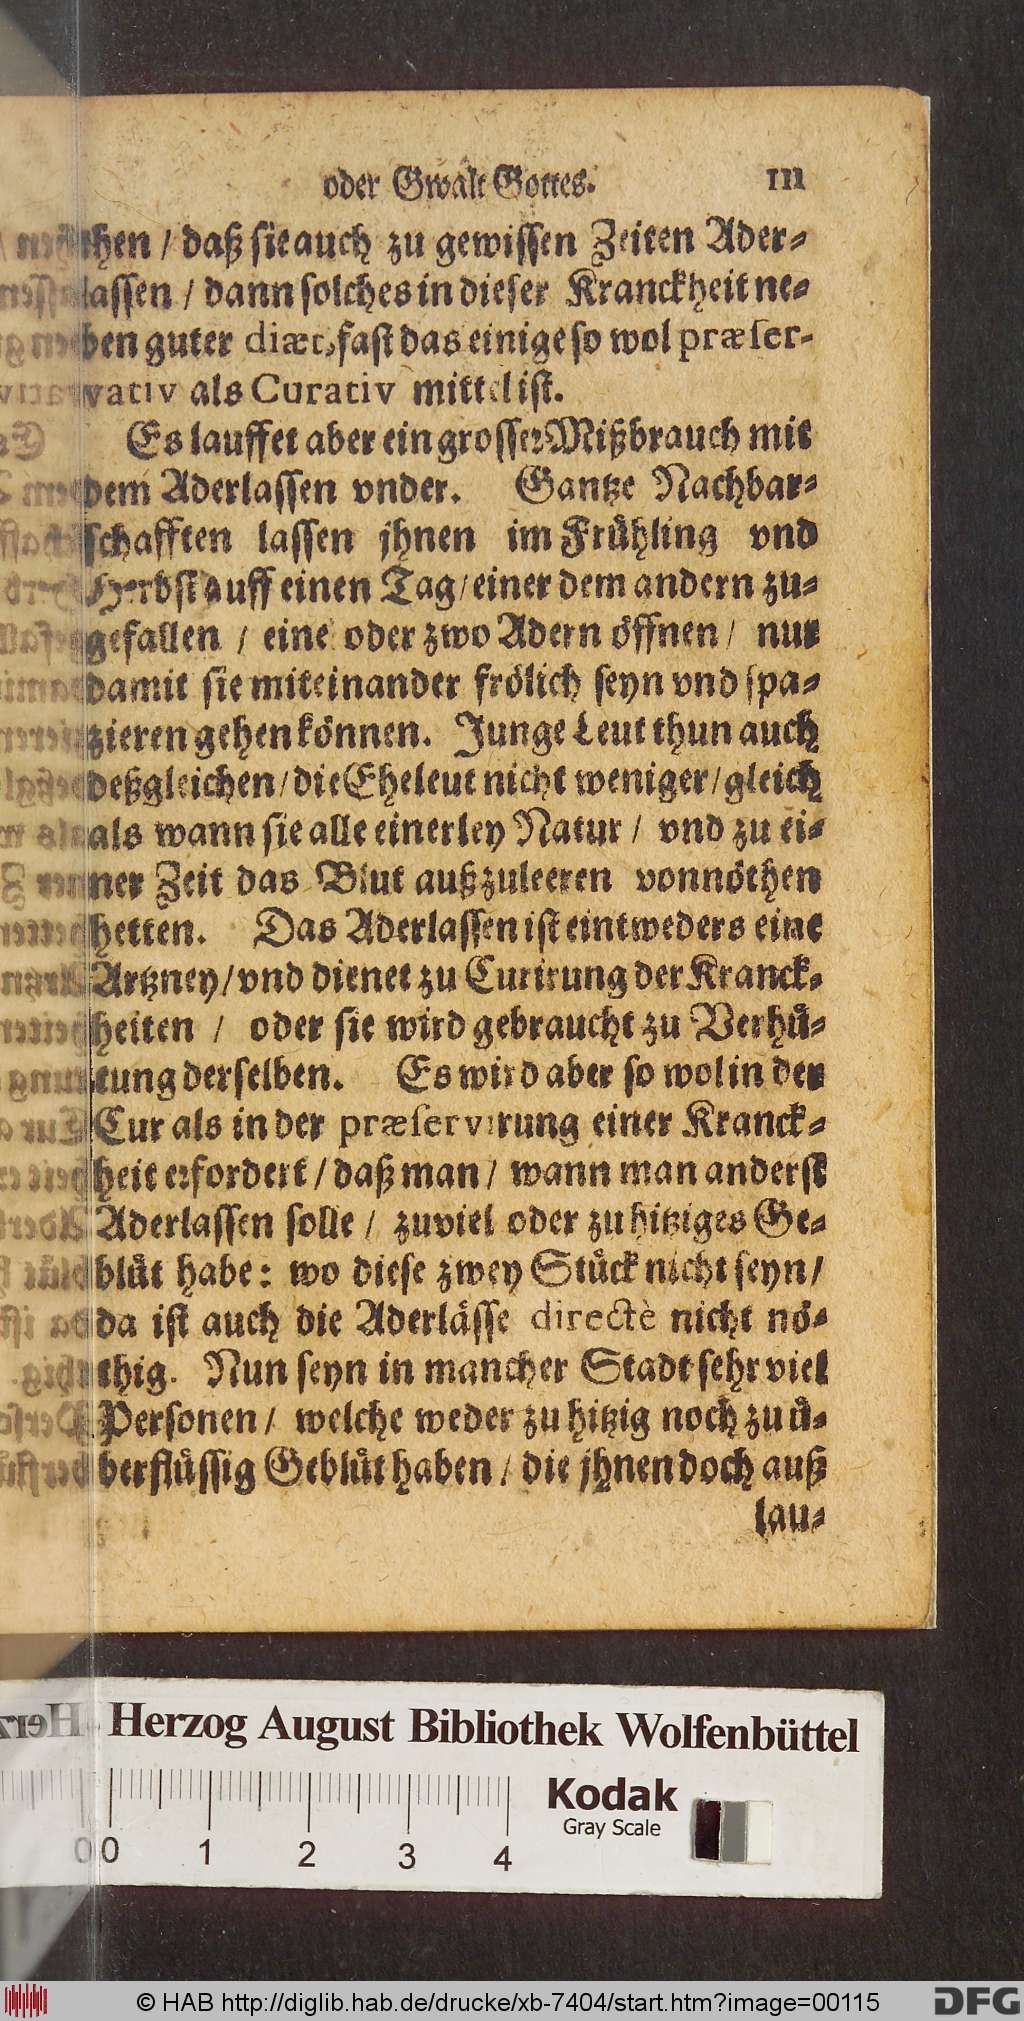 oder Gwalt Gottes. 111
hen / daß sie auch zu gewissen Zeiten Ader-
lassen / dann solches in dieser Kranckheit ne-
ben guter diæt, fast das einige so wol præser-
vativ als Curativ mittel ist.
Es lauffet aber ein grosser Mißbrauch mit
dem Aderlassen vnder. Gantze Nachbar-
schafften lassen jhnen im Frühling vnd
Herbst auff einen Tag / einer dem andern zu-
gefallen / eine oder zwo Adern öffnen / nur
damit sie miteinander frölich seyn vnd spa-
zieren gehen können. Junge Leut thun auch
deßgleichen / die Eheleut nicht weniger / gleich
als wann sie alle einerley Natur / vnd zu ei-
ner Zeit das Blut außzuleeren vonnöthen
hetten. Das Aderlassen ist eintweders eine
Artzney / vnd dienet zu Curirung der Kranck-
heiten / oder sie wird gebraucht zu Verhü-
tung derselben. Es wird aber so wol in der
Cur als in der præservirung einer Kranck-
heit erfordert / daß man / wann man anderst
Aderlassen solle / zuviel oder zu hitziges Ge-
blüt habe: wo diese zwey Stück nicht seyn /
da ist auch die Aderlässe directè nicht nö-
thig. Nun seyn in mancher Stadt sehr viel
Personen / welche weder zu hitzig noch zu ü-
berflüssig Geblüt haben / die jhnen doch auß
lau-
Herzog August Bibliothek Wolfenbüttel
Kodak
Gray Scale
0 1 2 3 4
© HAB http://diglib.hab.de/drucke/xb-7404/start.htm?image=00115
DFG